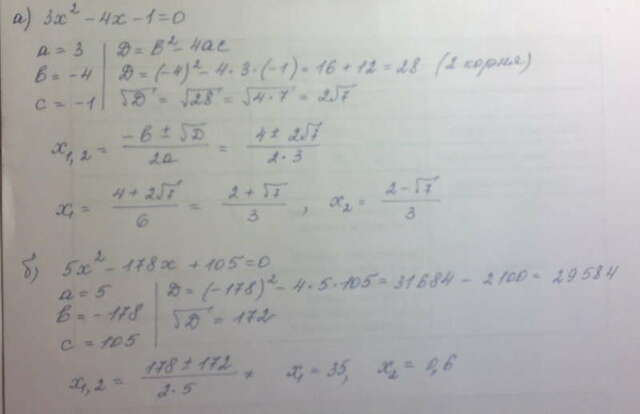 а) 3x² - 4x - 1 = 0
a = 3 | D = b² - 4ac
b = -4 | D = (-4)² - 4·3·(-1) = 16 + 12 = 28 (2 корня)
c = -1 | √D = √28 = √4·7 = 2√7
x₁,₂ = (-b ± √D)/2a = (4 ± 2√7)/2·3
x₁ = (4 + 2√7)/6 = (2 + √7)/3 , x₂ = (2 - √7)/3
б) 5x² - 178x + 105 = 0
a = 5 | D = (-178)² - 4·5·105 = 31684 - 2100 = 29584
b = -178 | √D = 172
c = 105
x₁,₂ = (178 ± 172)/2·5 , x₁ = 35, x₂ = 0,6